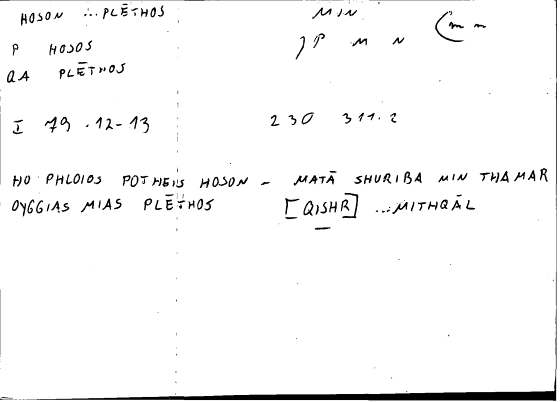 HOSON ... PLĒTHOS MIN
P HOSOS M N
QA PLĒTHOS
I 79 .12-13 230 311.2
HO PHLOIOS POTHEIS HOSON – MATĀ SHURIBA MIN THAMAR
OYGGIAS MIAS PLĒTHOS [QISHR] ...MITHQĀL